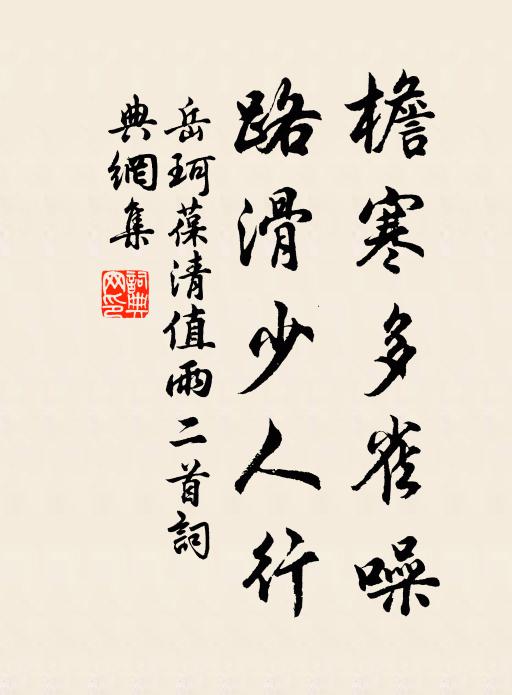 檐寒多雀噪
路滑少人行
岳珂葆清值雨二首詞
典網集
詞典網印